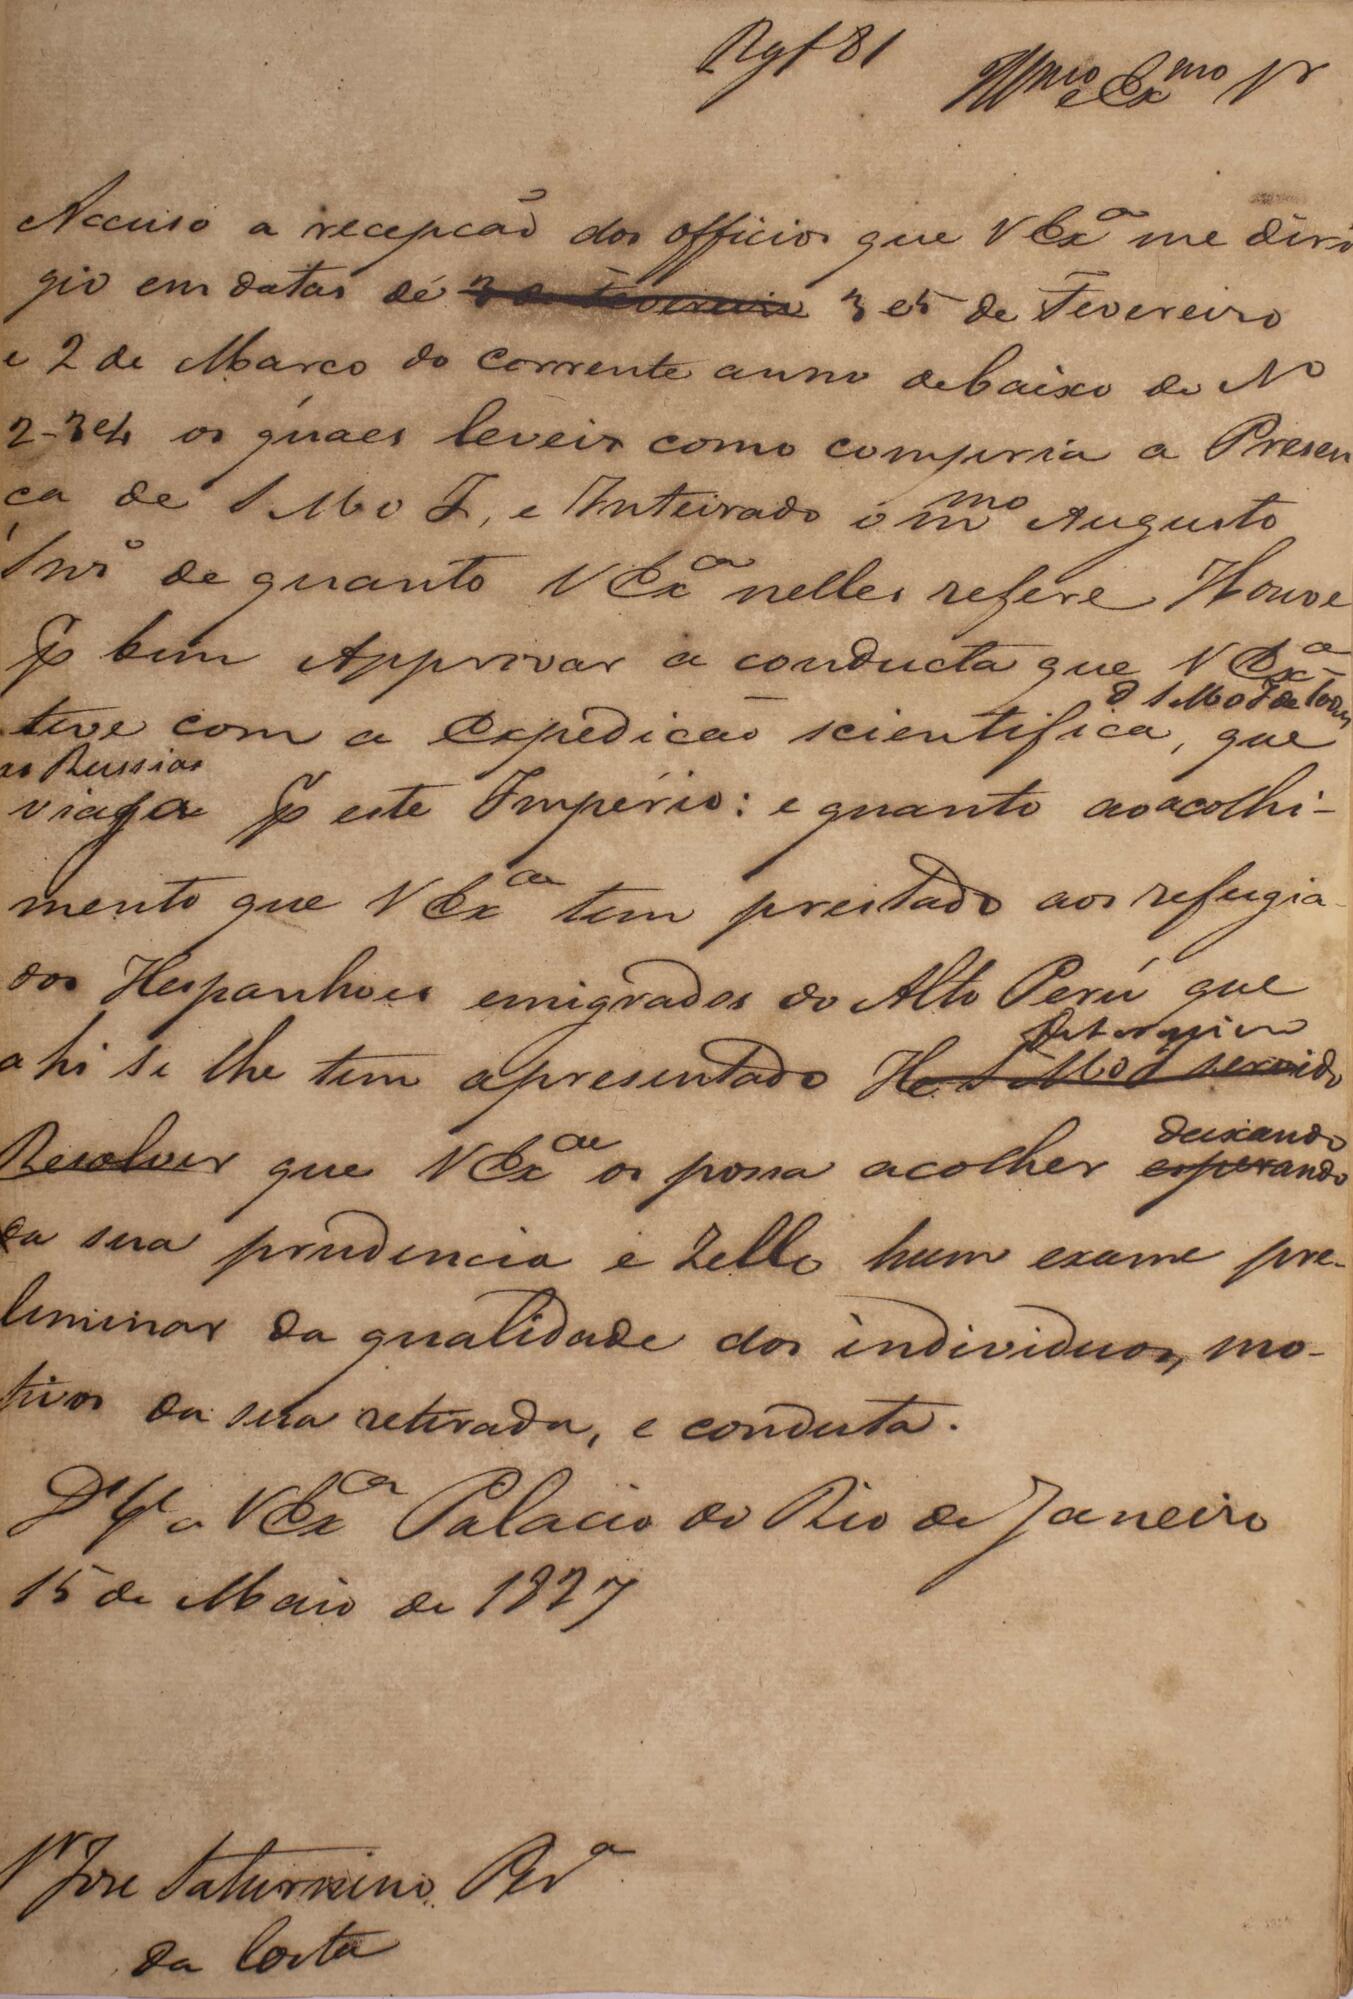 Rgf 81
Illmo e Exmo Sr
Accuso a recepcão dos officios que V Exa me diri
gio em datas de 3 de Fevereiro 3 e 5 de Fevereiro
e 2 de Marco do corrente anno debaixo de No
2-3 e 4 os quaes leveis como compria a Presen
ca de S M o I, e Inteirado o mmo Augusto
Snro de quanto V Exa nelles refere Houve
p bem Approvar a conducta que V Exa
teve com a Expedicão scientifica, que
d S M o I de todas
as Russias
viaja p este Império: e quanto ao acolhi-
mento que V Exa tem prestado aos refugia-
dos Hespanhoes emigrados do Alto Perú que
ahi se lhe tem apresentado He S M o I servido
Determina
Resolver que V Exa os possa acolher esperando
deixando
da sua prudencia e Zello hum exame pre-
liminar da qualidade dos individuos, mo-
tivos da sua retirada, e conduta.
Ds Ge a V Exa Palacio do Rio de Janeiro
15 de Maio de 1827
Sr Jose Saturnino Pera
da Costa